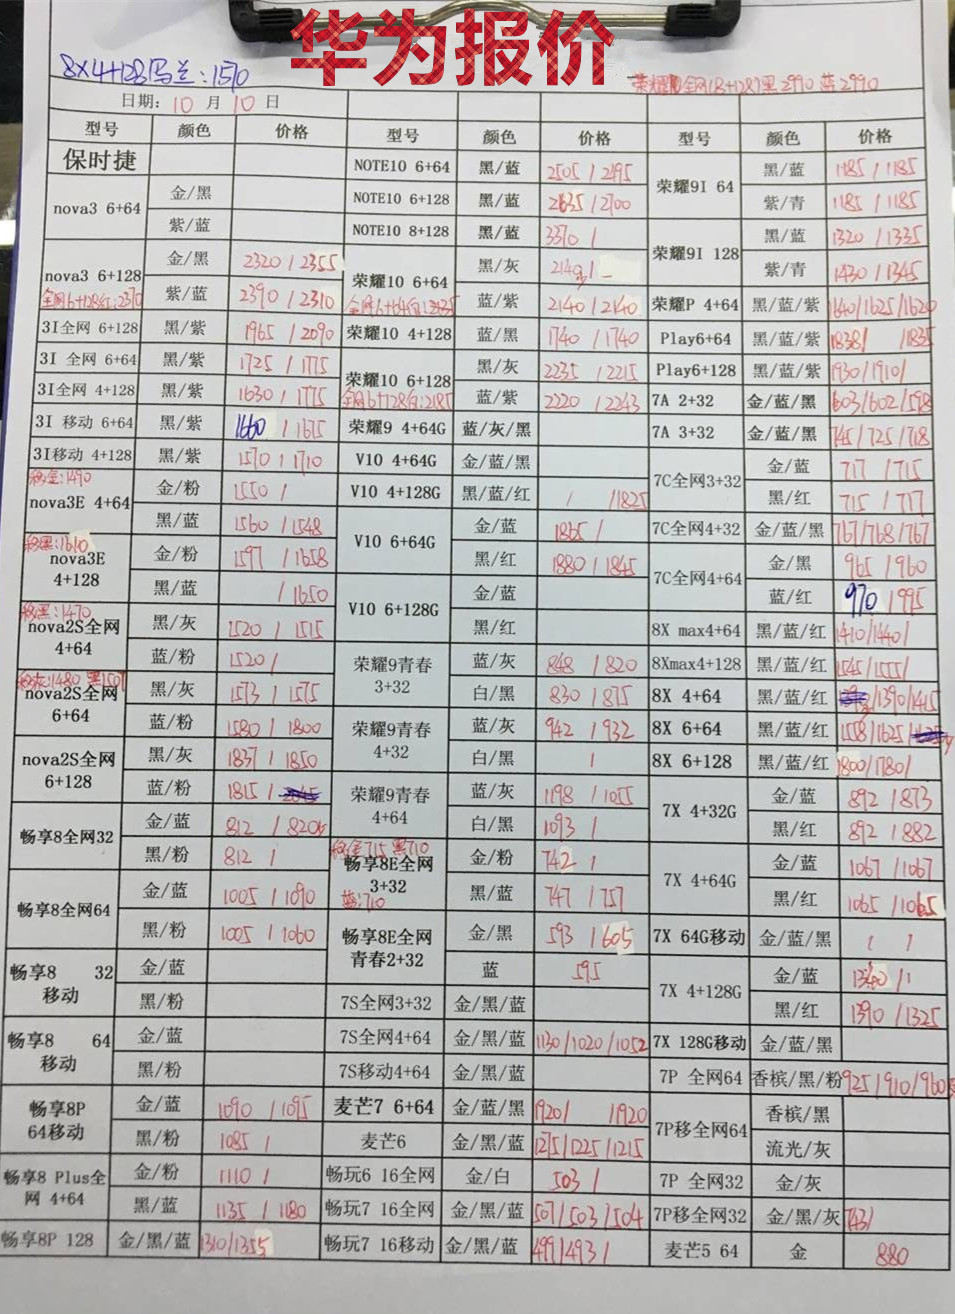 华为报价
8X4+128马兰:1570
荣耀10全网(8+128)黑2990 蓝2990
日期: 10 月 10 日
型号 颜色 价格 型号 颜色 价格 型号 颜色 价格
保时捷
nova3 6+64 金/黑
紫/蓝
nova3 6+128 金/黑 2320 / 2355
全网6+128红:2370 紫/蓝 2390 / 2310
3I全网 6+128 黑/紫 1965 / 2090
3I 全网 6+64 黑/紫 1725 / 1775
3I全网 4+128 黑/紫 1630 / 1775
3I 移动 6+64 黑/紫 1660 / 1675
3I移动 4+128 黑/紫 1570 / 1710
移金:1490
nova3E 4+64 金/粉 1550 /
黑/蓝 1560 / 1548
移黑:1610
nova3E 4+128 金/粉 1597 / 1658
黑/蓝 / 1650
移黑:1470
nova2S全网 4+64 黑/灰 1520 / 1515
蓝/粉 1520 /
nova2S全网 6+64 黑/灰 1573 / 1575
蓝/粉 1580 / 1800
nova2S全网 6+128 黑/灰 1837 / 1850
蓝/粉 1815 /
畅享8全网32 金/蓝 812 / 820
黑/粉 812 /
畅享8全网64 金/蓝 1005 / 1090
黑/粉 1005 / 1060
畅享8 32 移动 金/蓝
黑/粉
畅享8 64 移动 金/蓝
黑/粉
畅享8P 64移动 金/蓝 1090 / 1095
黑/粉 1085 /
畅享8 Plus全网 4+64 金/粉 1110 /
黑/蓝 1135 / 1180
畅享8P 128 金/黑/蓝 1310/1355
NOTE10 6+64 黑/蓝 2505 / 2495
NOTE10 6+128 黑/蓝 2635 / 2700
NOTE10 8+128 黑/蓝 3370 /
荣耀10 6+64 黑/灰 2140 / -
蓝/紫 2140 / 2140
荣耀10 4+128 蓝/黑 1740 / 1740
荣耀10 6+128 黑/灰 2235 / 2215
全网6+128白:2185 蓝/紫 2220 / 2243
荣耀9 4+64G 蓝/灰/黑
V10 4+64G 金/蓝/黑
V10 4+128G 黑/蓝/红 / /1825
V10 6+64G 金/蓝 1865 /
黑/红 1880 / 1845
V10 6+128G 金/蓝
黑/红
荣耀9青春 3+32 蓝/灰 848 / 820
白/黑 830 / 875
荣耀9青春 4+32 蓝/灰 942 / 932
白/黑 /
荣耀9青春 4+64 蓝/灰 1198 / 1055
白/黑 1093 /
移金715 黑710
畅享8E全网 3+32 金/粉 742 /
蓝:710 黑/蓝 747 / 757
畅享8E全网 青春2+32 金/黑 593 / 605
蓝 595
7S全网3+32 金/黑/蓝
7S全网4+64 金/黑/蓝 1130/1020/1052
7S移动4+64 金/黑/蓝
麦芒7 6+64 金/蓝/黑 1920/ /1920
麦芒6 金/黑/蓝 1275/1225/1215
畅玩6 16全网 金/白 503 /
畅玩7 16全网 金/黑/蓝 507/503/504
畅玩7 16移动 金/黑/蓝 499/493/
荣耀9I 64 黑/蓝 1185 / 1185
紫/青 1185 / 1185
荣耀9I 128 黑/蓝 1320 / 1335
紫/青 1430 / 1345
荣耀P 4+64 黑/蓝/紫 1640/1625/1620
Play6+64 黑/蓝/紫 1838/ /1835
Play6+128 黑/蓝/紫 1930/1910/
7A 2+32 金/蓝/黑 603/602/598
7A 3+32 金/蓝/黑 745/725/718
7C全网3+32 金/蓝 717 / 715
黑/红 715 / 717
7C全网4+32 金/蓝/黑 767/768/767
7C全网4+64 金/黑 965 / 960
蓝/红 970 / 995
8X max4+64 黑/蓝/红 1410/1440/
8Xmax4+128 黑/蓝/红 1545/1555/
8X 4+64 黑/蓝/红 /1390/1415
8X 6+64 黑/蓝/红 1558/1625/
8X 6+128 黑/蓝/红 1800/1780/
7X 4+32G 金/蓝 892 / 873
黑/红 892 / 882
7X 4+64G 金/蓝 1067 / 1067
黑/红 1065 / 1065
7X 64G移动 金/蓝/黑 / /
7X 4+128G 金/蓝
黑/红 1390 / 1325
7X 128G移动 金/蓝/黑
7P 全网64 香槟/黑/粉 925/910/960
7P移全网64 香槟/黑
流光/灰
7P 全网32 金/灰
7P移全网32 金/黑/灰 743/
麦芒5 64 金 880